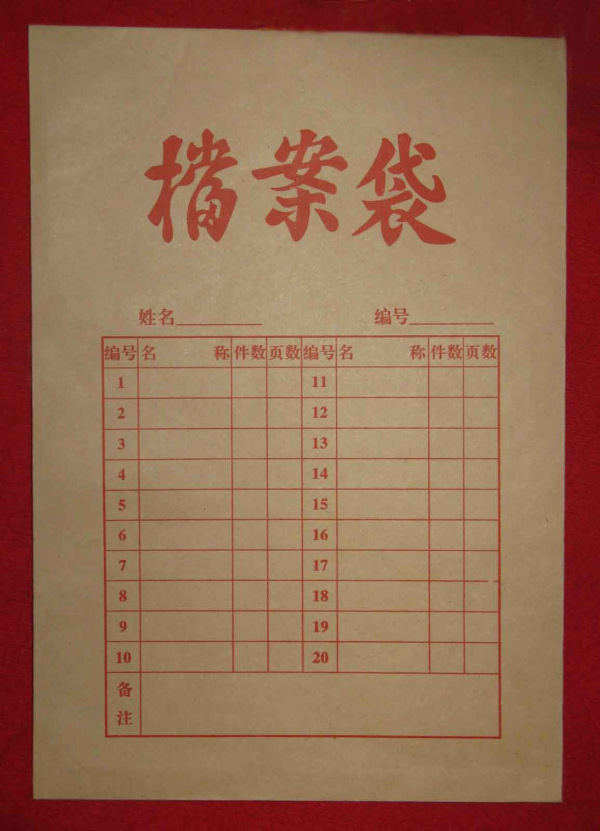 檔案袋
姓名________ 编号________
编号 名称 件数 页数 编号 名称 件数 页数
1 11
2 12
3 13
4 14
5 15
6 16
7 17
8 18
9 19
10 20
备注